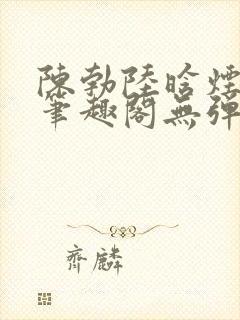 陳勃陸晗煙
筆趣閣無彈
齊麟